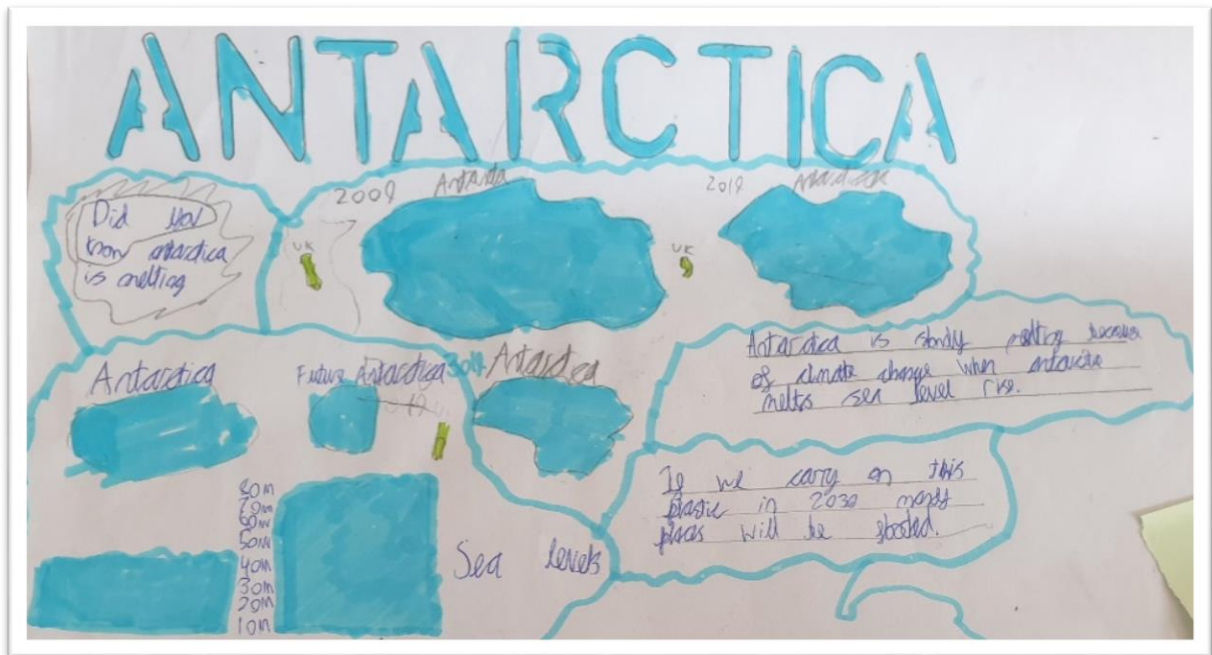 ANTARCTICA
Did you
know antarctica
is melting
2009
UK
2019
UK
Antarctica
Future Antarctica
Antarctica is slowly melting because
of climate change when antarctica
melts sea level rise.
If we carry on this
plastic in 2030 many
places will be flooded.
80m
70m
60m
50m
40m
30m
20m
10m
Sea levels